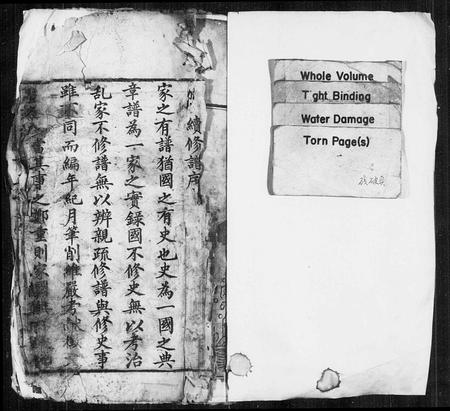 續修譜序
家之有譜猶國之有史也史為一國之典
章譜為一家之實錄國不修史無以考治
乱家不修譜無以辨親疏修譜與修史事
雖不同而編年紀月筆削維嚴考
其事之鄭重則家
Whole Volume
Tight Binding
Water Damage
Torn Page(s)